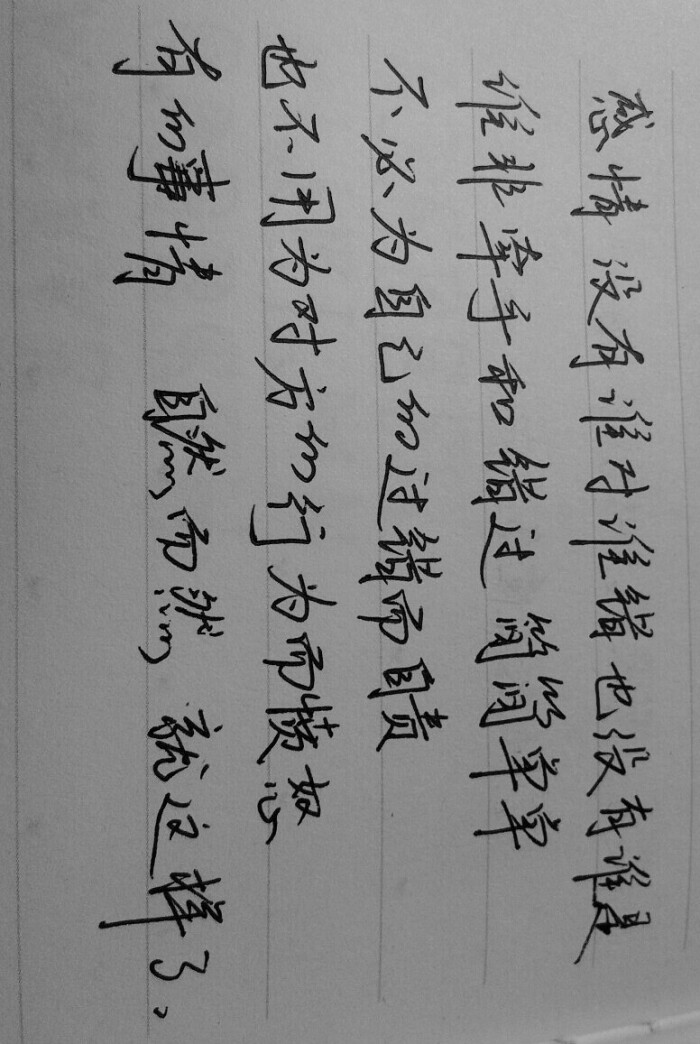 感情没有谁对谁错也没有谁是
谁非牵手和错过简简单单
不必为自己的过错而自责
也不用为对方的行为而愤怒
有的事情 自然而然 就这样了.